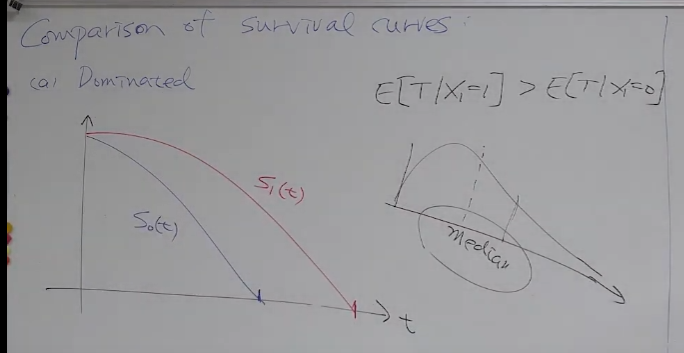 Comparison of survival curves:
(a) Dominated
E[T|X₁=1] > E[T|X₁=0]
S₁(t)
S₀(t)
Median
t